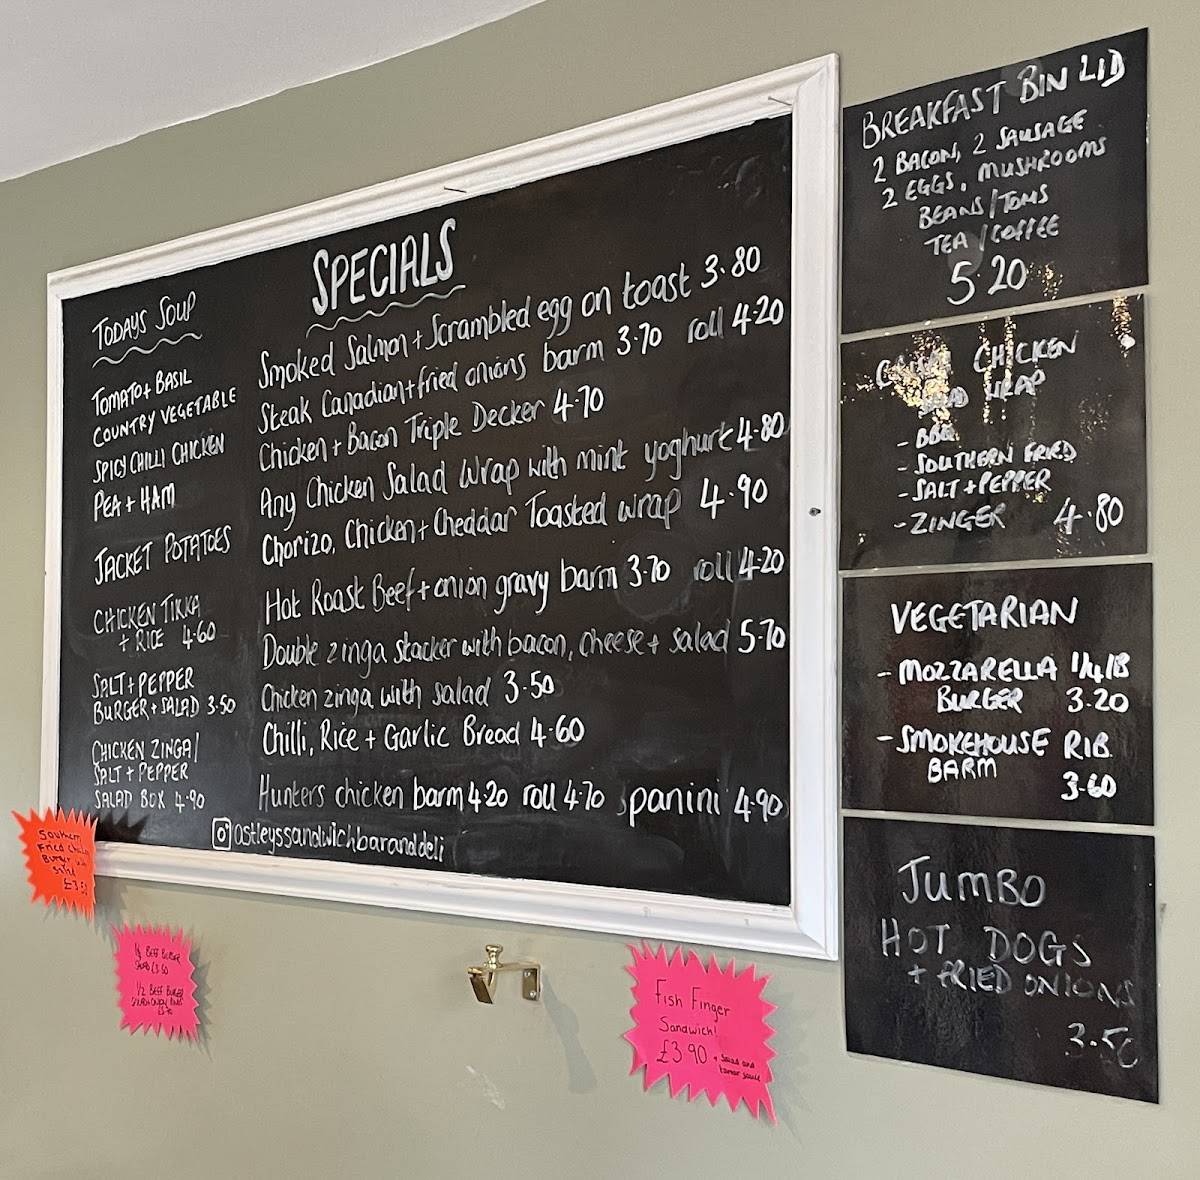 TODAYS SOUP
TOMATO + BASIL
COUNTRY VEGETABLE
SPICY CHILLI CHICKEN
PEA + HAM
JACKET POTATOES
CHICKEN TIKKA
+ RICE 4.60
SALT + PEPPER
BURGER + SALAD 3.50
CHICKEN ZINGA/
SALT + PEPPER
SALAD BOX 4.90
SPECIALS
Smoked Salmon + Scrambled egg on toast 3.80
Steak Canadian + fried onions barm 3.70 roll 4.20
Chicken + Bacon Triple Decker 4.70
Any Chicken Salad Wrap with mint yoghurt 4.80
Chorizo, Chicken + Cheddar Toasted wrap 4.90
Hot Roast Beef + onion gravy barm 3.70 roll 4.20
Double zinga stacker with bacon, cheese + salad 5.70
Chicken zinga with salad 3.50
Chilli, Rice + Garlic Bread 4.60
Hunters chicken barm 4.20 roll 4.70 panini 4.90
astleyssandwichbaranddeli
BREAKFAST BIN LID
2 BACON, 2 SAUSAGE
2 EGGS, MUSHROOMS
BEANS/TOMS
TEA/COFFEE
5.20
CHICKEN
WRAP
- BBQ
- SOUTHERN FRIED
- SALT + PEPPER
- ZINGER 4.80
VEGETARIAN
- MOZZARELLA 1/4 lB
BURGER 3.20
- SMOKEHOUSE RIB
BARM
3.60
JUMBO
HOT DOGS
+ FRIED ONIONS
3.50
Southern
Fried
Burger
£3.50
BEEF BURGER
£3.60
1/2 BEEF BURGER
Fish Finger
Sandwich!
£3.90 + Salad and